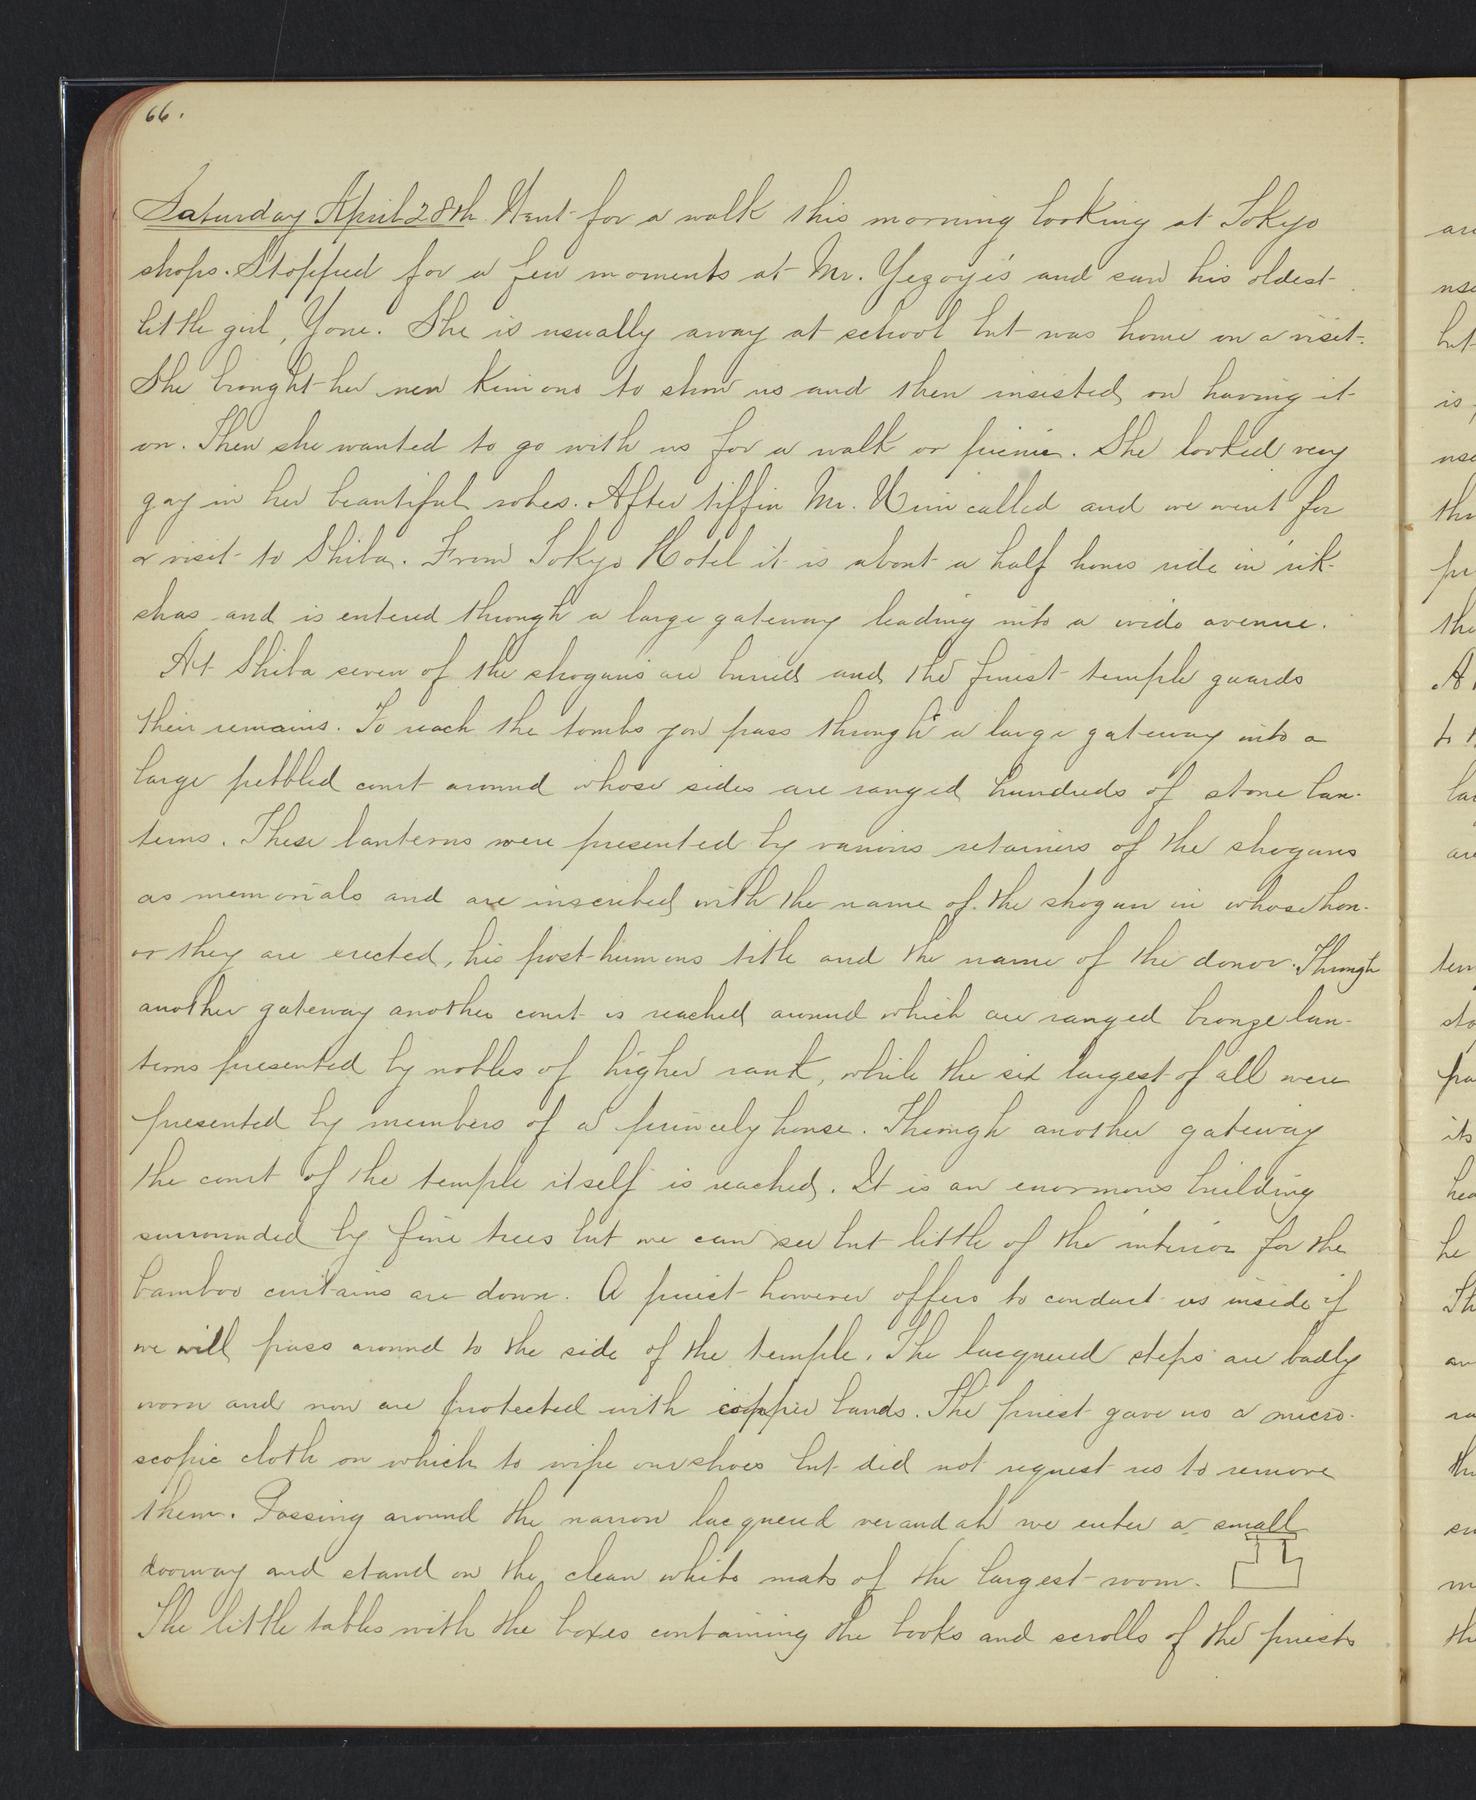 66.
Saturday April 28th. Went for a walk this morning looking at Tokyo
shops. Stopped for a few moments at Mr. Yezoye's and saw his oldest
little girl, Yone. She is usually away at school but was home on a visit.
She brought her new kimono to show us and then insisted on having it
on. Then she wanted to go with us for a walk or picnic. She looked very
gay in her beautiful robes. After tiffin Mr. called and we went for
a visit to Shiba. From Tokyo Hotel it is about a half hours ride in 'rik-
shas and is entered through a large gateway leading into a wide avenue.
At Shiba seven of the shoguns are buried and the finest temple guards
their remains. To reach the tombs you pass through a large gateway into a
large pebbled court around whose sides are ranged hundreds of stone lan-
terns. These lanterns were presented by various retainers of the shoguns
as memorials and are inscribed with the name of the shogun in whose hon-
or they are erected, his post-humous title and the name of the donor. Through
another gateway another court is reached around which are ranged bronze lan-
terns presented by nobles of higher rank, while the six largest of all were
presented by members of a princely house. Through another gateway
the court of the temple itself is reached. It is an enormous building
surrounded by fine trees but we can see but little of the interior for the
bamboo curtains are down. A priest however offers to conduct us inside if
we will pass around to the side of the temple. The lacquered steps are badly
worn and now are protected with copper bands. The priest gave us a micro-
scopic cloth on which to wipe our shoes but did not request us to remove
them. Passing around the narrow lacquered verandah we enter a small
doorway and stand on the clean white mats of the largest room.
The little tables with the boxes containing the books and scrolls of the priests